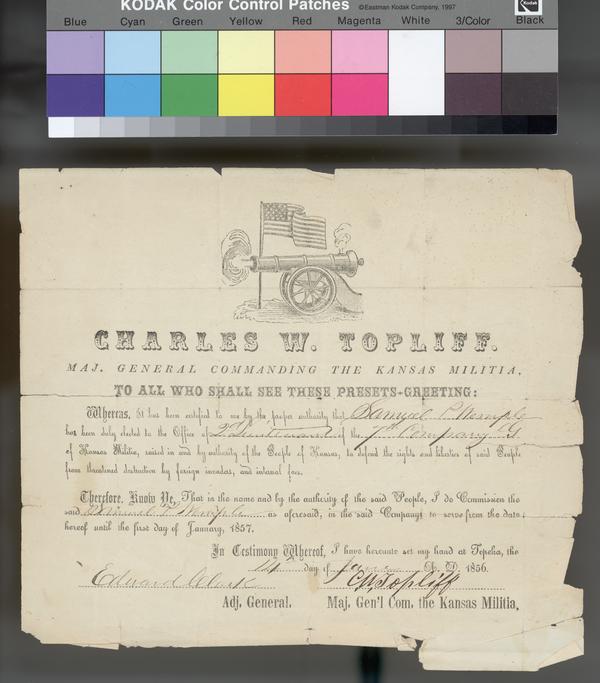 KODAK Color Control Patches ©Eastman Kodak Company, 1997 Kodak
Blue Cyan Green Yellow Red Magenta White 3/Color Black
CHARLES W. TOPLIFF.
MAJ. GENERAL COMMANDING THE KANSAS MILITIA,
TO ALL WHO SHALL SEE THESE PRESETS-GREETING:
Whereas, It has been certified to me by the proper authority that Samuel P. Wemple
has been duly elected to the Office of 2d Lieutenant of the 7th Company G
of Kansas Militia, raised in and by authority of the People of Kansas, to defend the rights and liberties of said People
from threatened destruction by foreign invaders, and internal foes.
Therefore, Know Ye, That in the name and by the authority of the said People, I do Commission the
said Samuel P. Wemple as aforesaid, in the said Company; to serve from the date
hereof until the first day of January, 1857.
In Testimony Whereof, I have hereunto set my hand at Topeka, the
day of A. D. 1856.
Edward Clark C W Topliff
Adj. General. Maj. Gen'l Com. the Kansas Militia,